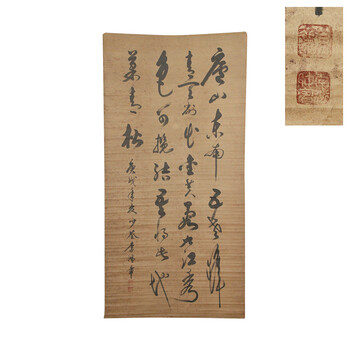 廬山東南五老峰
青天削出金芙蓉九江秀
色可攬結吾將此地
巢雲松